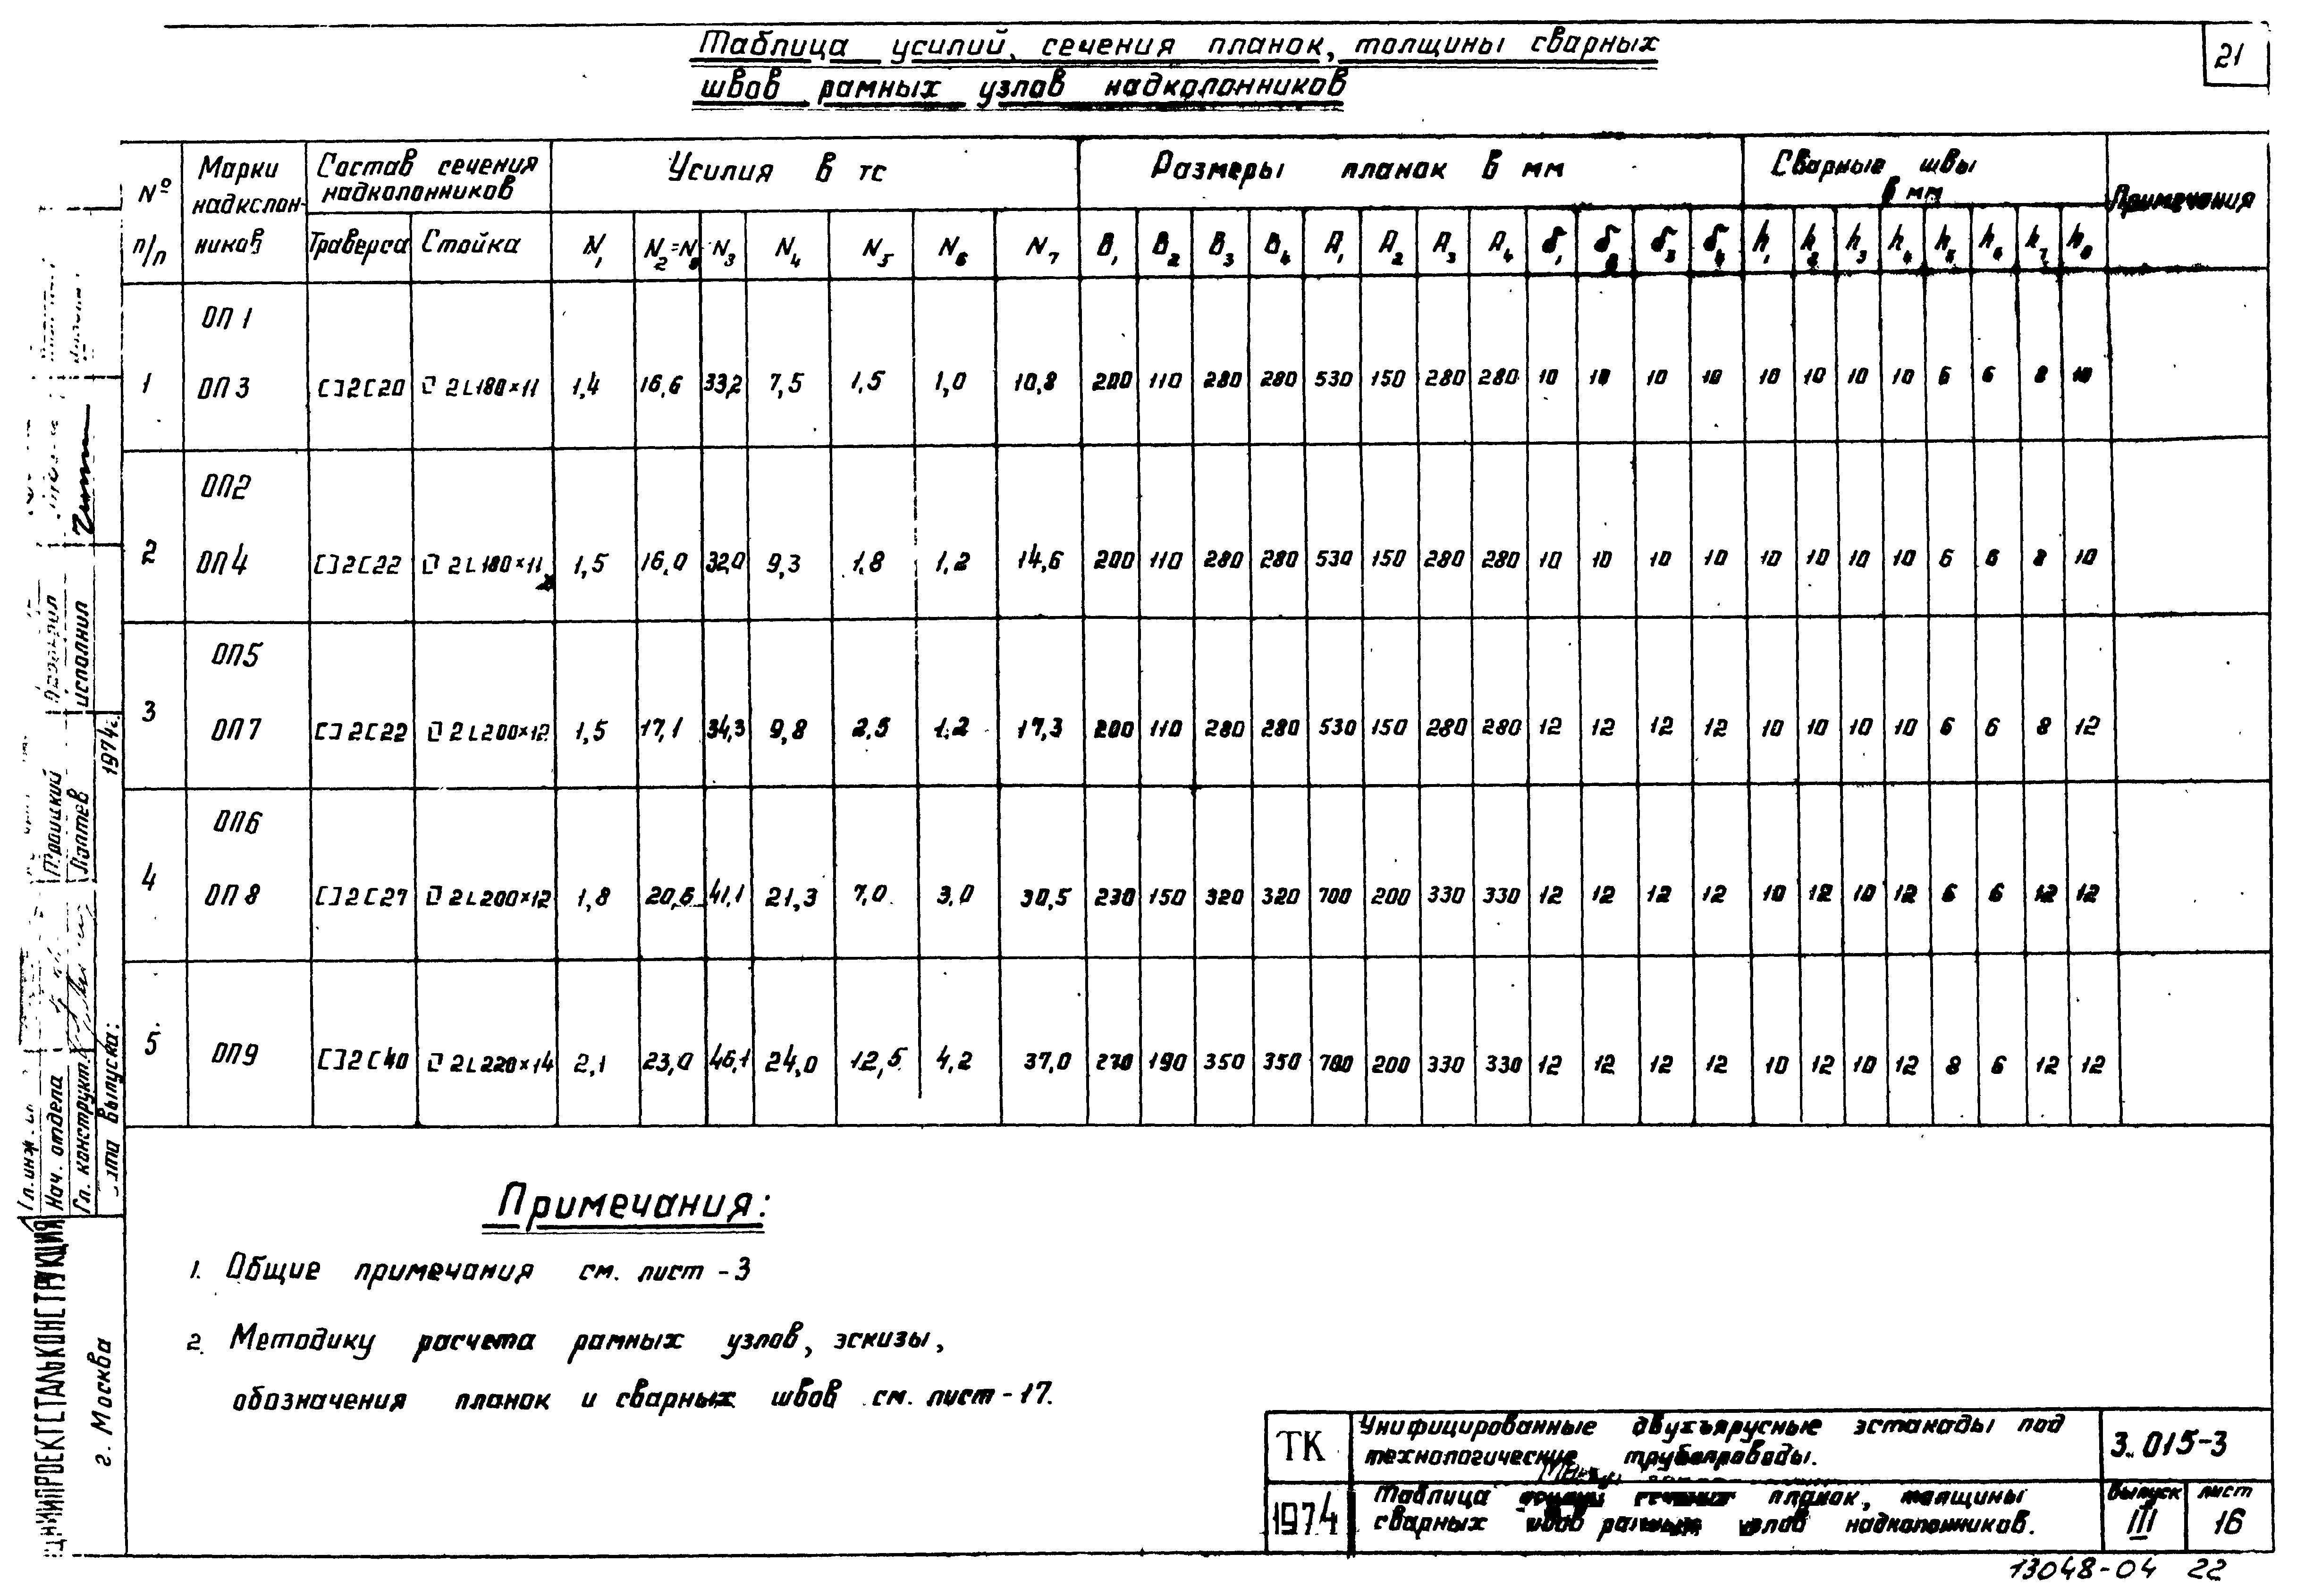 21
Таблица усилий, сечения планок, толщины сварных
швов рамных узлов надколонников
№ п/п | Марки надколонников | Состав сечения надколонников | Усилия в тс | Размеры планок в мм | Сварные швы в мм | Примечания
Траверса | Стойка | N1 | N2=N8 | N3 | N4 | N5 | N6 | N7 | B1 | B2 | B3 | B4 | A1 | A2 | A3 | A4 | δ1 | δ2 | δ3 | δ4 | h1 | h2 | h3 | h4 | h5 | h6 | h7 | h8
1 | ОП1 ОП3 | []2[20 | 2L180×11 | 1,4 | 16,6 | 33,2 | 7,5 | 1,5 | 1,0 | 10,8 | 200 | 110 | 280 | 280 | 530 | 150 | 280 | 280 | 10 | 10 | 10 | 10 | 10 | 10 | 10 | 10 | 6 | 6 | 8 | 10
2 | ОП2 ОП4 | []2[22 | 2L180×11 | 1,5 | 16,0 | 32,0 | 9,3 | 1,8 | 1,2 | 14,6 | 200 | 110 | 280 | 280 | 530 | 150 | 280 | 280 | 10 | 10 | 10 | 10 | 10 | 10 | 10 | 10 | 6 | 6 | 8 | 10
3 | ОП5 ОП7 | []2[22 | 2L200×12 | 1,5 | 17,1 | 34,3 | 9,8 | 2,5 | 1,2 | 17,3 | 200 | 110 | 280 | 280 | 530 | 150 | 280 | 280 | 12 | 12 | 12 | 12 | 10 | 10 | 10 | 10 | 6 | 6 | 8 | 12
4 | ОП6 ОП8 | []2[27 | 2L200×12 | 1,8 | 20,6 | 41,1 | 21,3 | 7,0 | 3,0 | 30,5 | 230 | 150 | 320 | 320 | 700 | 200 | 330 | 330 | 12 | 12 | 12 | 12 | 10 | 12 | 10 | 12 | 6 | 6 | 12 | 12
5 | ОП9 | []2[40 | 2L220×14 | 2,1 | 23,0 | 46,1 | 24,0 | 12,5 | 4,2 | 37,0 | 270 | 190 | 350 | 350 | 700 | 200 | 330 | 330 | 12 | 12 | 12 | 12 | 10 | 12 | 10 | 12 | 8 | 6 | 12 | 12
Примечания:
1. Общие примечания см. лист - 3
2. Методику расчета рамных узлов, эскизы,
обозначения планок и сварных швов см. лист - 17.
ТК
Унифицированные двухъярусные эстакады под
технологические трубопроводы.
3.015-3
1974
Таблица планок, толщины
сварных швов рамных узлов надколонников.
выпуск III
лист 16
13048-04 22
ЦНИИПРОЕКТСТАЛЬКОНСТРУКЦИЯ
г. Москва
Нач. отдела
Гл. конструкт.
выпуска: 1974г.
Лаптев
исполнил